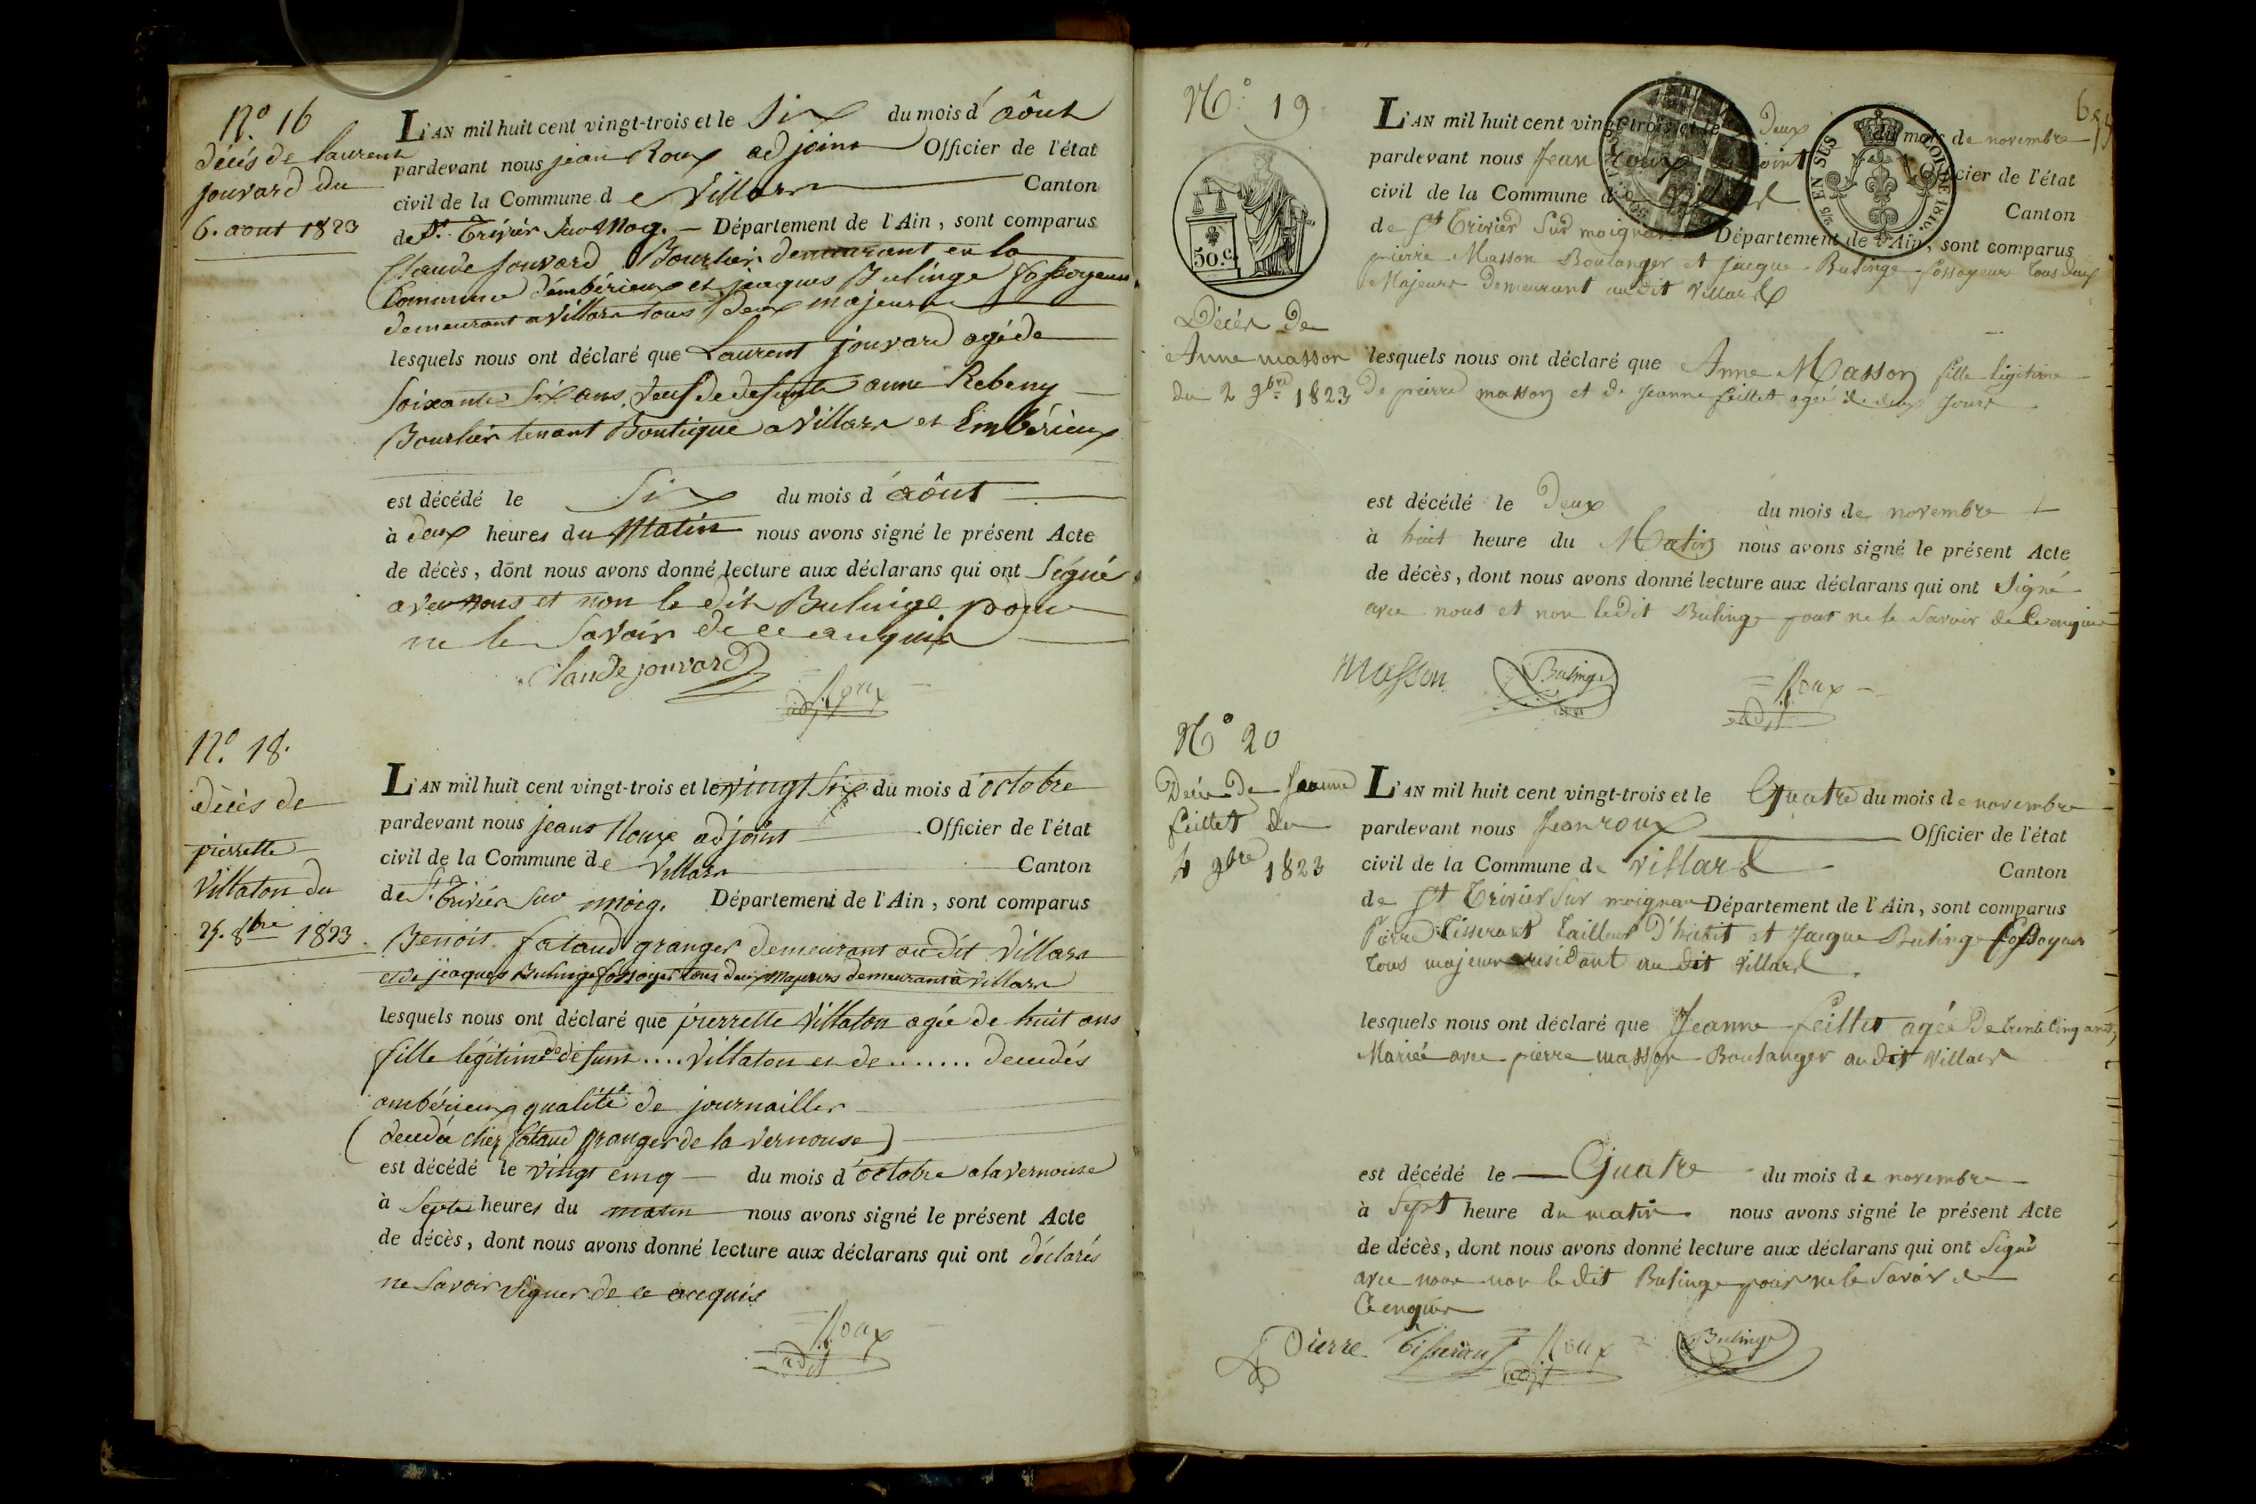 N.º 16
décès de laurent
jouvard du
6. aout 1823
L'AN mil huit cent vingt-trois et le Six du mois d'aôut
pardevant nous jean Roux adjoint Officier de l'état
civil de la Commune de Villars Canton
de St. Trivier Sur Moig. Département de l'Ain, sont comparus
Claude Jouvard Bourlier demeurant en la
Commune d'embérieux et jeaques Bulinge fossoyeur
demeurant a Villars tous deux majeurs
lesquels nous ont déclaré que Laurent jouvard agé de
soixante Six ans, veuf de defunte anne Rebeny
Bourlier tenant Boutique a Villars et Embérieux
est décédé le Six du mois d'aôut
à deux heures du Matin nous avons signé le présent Acte
de décès, dont nous avons donné lecture aux déclarans qui ont Signé
avec nous et non le dit Bulinge pour
ne le Savoir de ce anquis
Claude jouvard Roux
adjt
N.º 18.
dècès de
pierrette
Villaton du
25. 8bre 1823.
L'AN mil huit cent vingt-trois et le vingt Six du mois d'octobre
pardevant nous jeans Roux adjoint Officier de l'état
civil de la Commune de Villars Canton
de St. Trivier Sur moig. Département de l'Ain, sont comparus
Benoit fataud granger demeurant au dit Villars
et de jeaques Bulinge fossoyer tous deux Majeurs demeurant à Villars
lesquels nous ont déclaré que pierrette Villaton agée de huit ans
fille légitime de defunt .... Villaton et de ....... decedés
ambérieux qualité de journaillier
(decedée chez fataud granger de la Vernouse)
est décédé le vingt cinq du mois d'octobre a la vernouse
à Septe heures du matin nous avons signé le présent Acte
de décès, dont nous avons donné lecture aux déclarans qui ont déclarés
ne Savoir Signer de ce acquis
Roux
adjt
Nº 19
50 C.
Décès de
Anne masson
du 2 9bre 1823
L'AN mil huit cent vingt-trois et le Deux du mois de novembre
pardevant nous Jean roux adjoint Officier de l'état
civil de la Commune de Villard Canton
de St Trivier Sur moignan Département de l'Ain, sont comparus
pierre Masson Boulanger et Jacque Bulinge fossoyeur tous deux
Majeurs Demeurant au dit Villard
lesquels nous ont déclaré que Anne Masson fille ligitime
De pierre masson et de Jeanne feillet agée de deux Jours
est décédé le Deux du mois de novembre
à huit heure du Matin nous avons signé le présent Acte
de décès, dont nous avons donné lecture aux déclarans qui ont Signé
avec nous et non ledit Bulinge pour ne le Savoir de Ce enquis
Masson Bulinge Roux
adjt
Nº 20
Décès De Jeanne
feillet du
4 9bre 1823
L'AN mil huit cent vingt-trois et le Quatre du mois de novembre
pardevant nous Jean roux Officier de l'état
civil de la Commune de Villard Canton
de St Trivier Sur moignan Département de l'Ain, sont comparus
Pierre Tisserant Tailleur D'habit et Jacque Bulinge fossoyeur
tous majeurs residant au dit Villard
lesquels nous ont déclaré que Jeanne feillet agée De trente cinq ans,
Mariée avec pierre masson Boulanger au dit Villars
est décédé le Quatre du mois de novembre
à Sept heure du matin nous avons signé le présent Acte
de décès, dont nous avons donné lecture aux déclarans qui ont Signé
avec nous non le dit Bulinge pour ne le Savoir de
Ce enquis
Pierre Tisserant Roux Bulinge
adjt